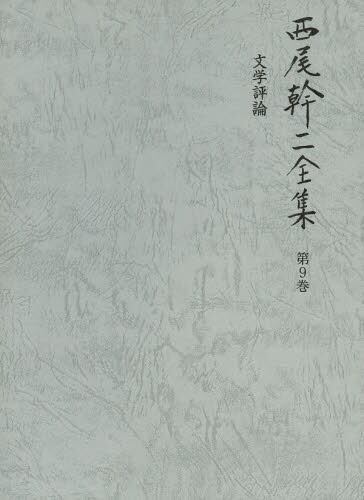 西尾幹二全集
第9巻
文学評論